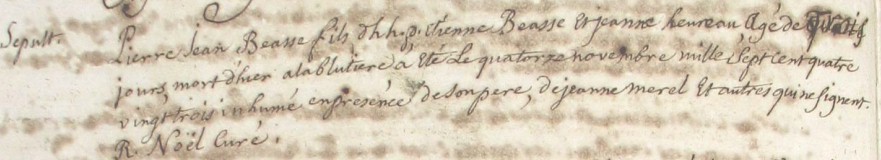 Sepult.
Pierre Jean Beasse fils d'h.h.p. etienne Beasse Et jeanne heureau Agé de
jours, mort d'hier a la blutiere a Eté Le quatorze novembre mille Sept Cent quatre
vingt trois inhumé en presence de Son pere, de jeanne merel Et autres qui ne Signent.
R. Noël Curé.